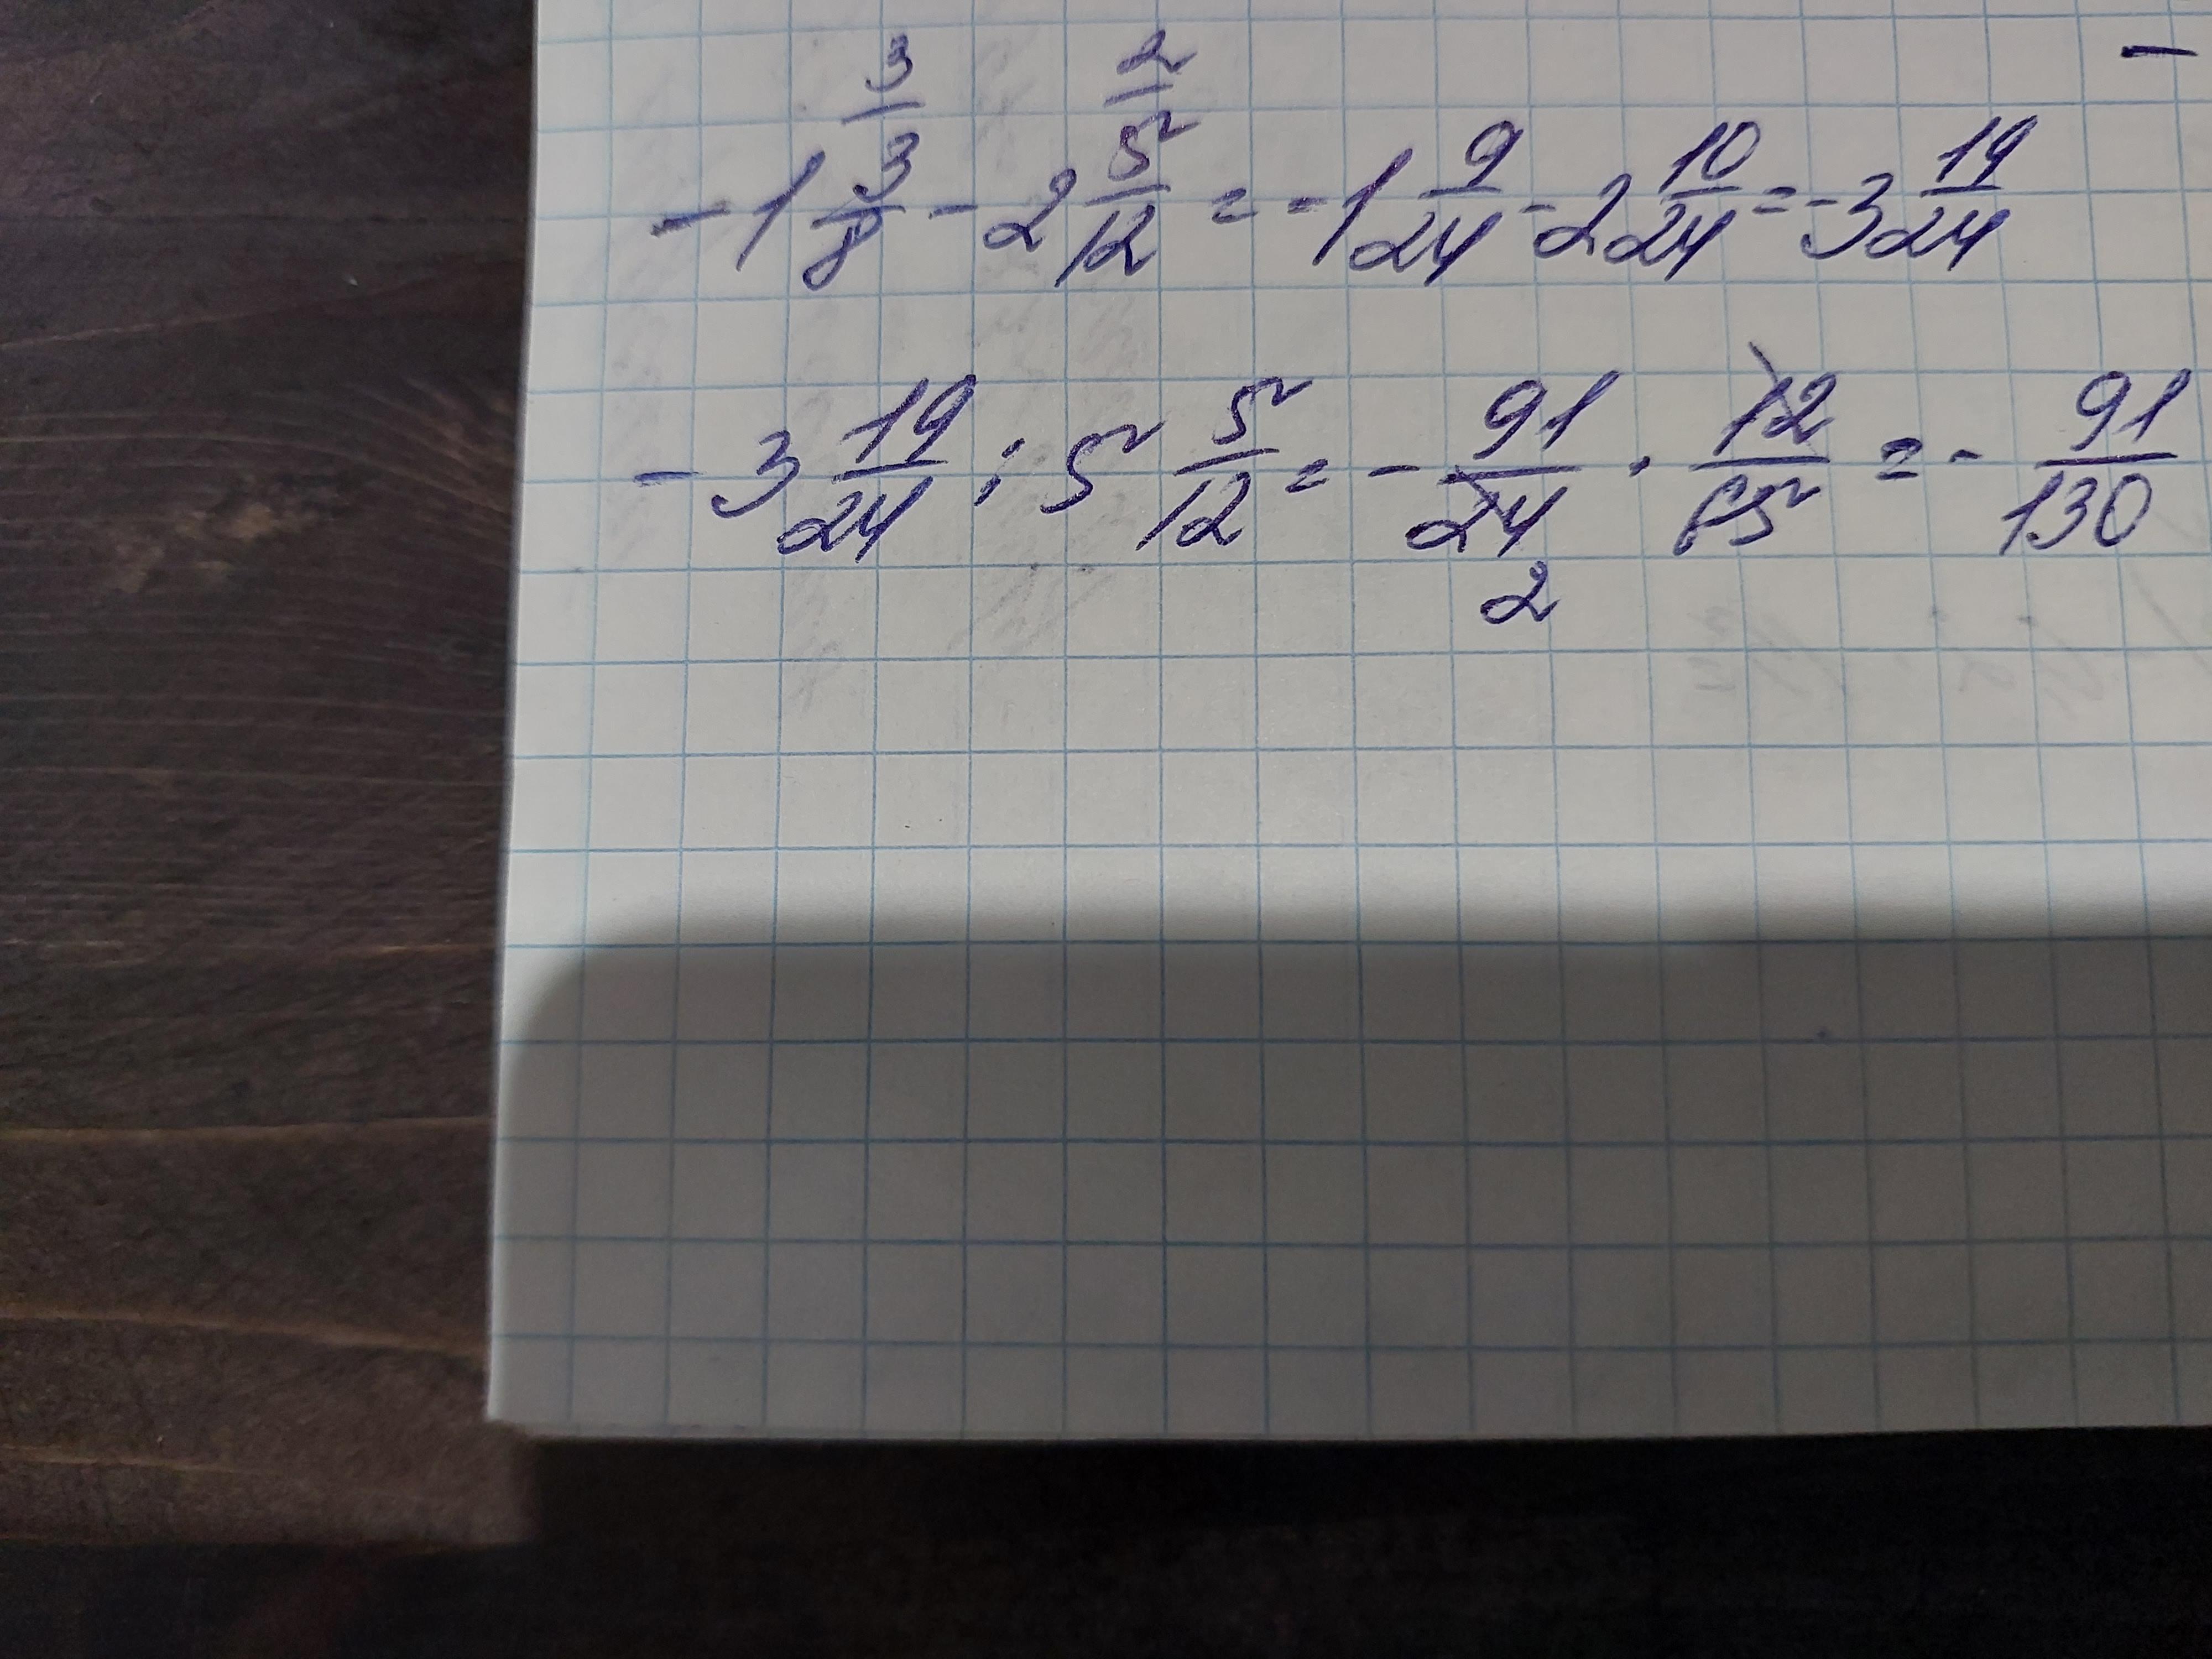 3/3 2/
-1 3/8 - 2 5/12 = -1 9/24 - 2 10/24 = -3 19/24
-3 19/24 : 5 5/12 = - 91/24 · 12/65 = - 91/130
2